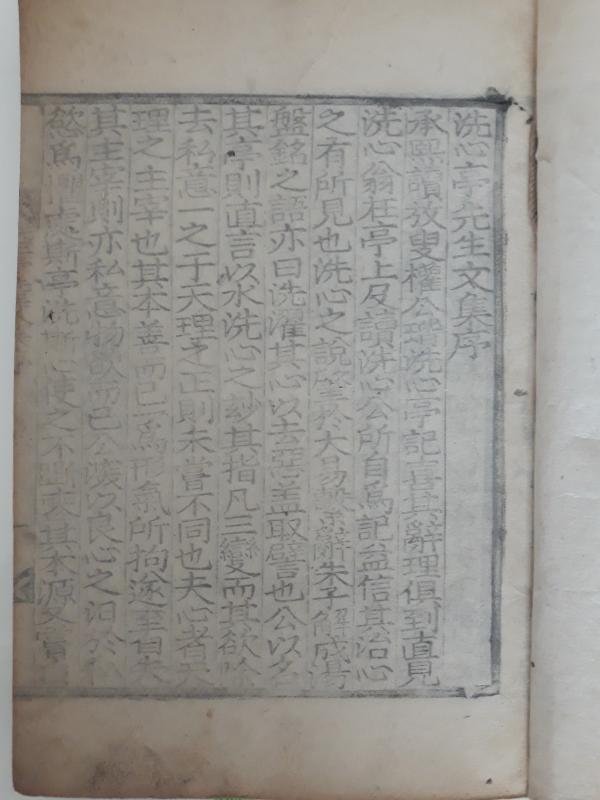 洗心亭先生文集序
承熙讀放叟權公璡洗心亭記喜其辭理俱到直見
洗心翁在亭上及讀洗心公所自爲記益信其治心
之有所見也洗心之說肇於大易繫辭朱子解成湯
盤銘之語亦曰洗濯其心以去惡盖取譬也公以名
其亭則直言以水洗心之妙其指凡三變而其欲除
去私意一之于天理之正則未嘗不同也夫心者天
理之主宰也其本善而已一爲形氣所拘遂至自失
其主宰則亦私意物欲而已公嘗以良心之汨於私
慾爲斯亭洗心使之不失其本源